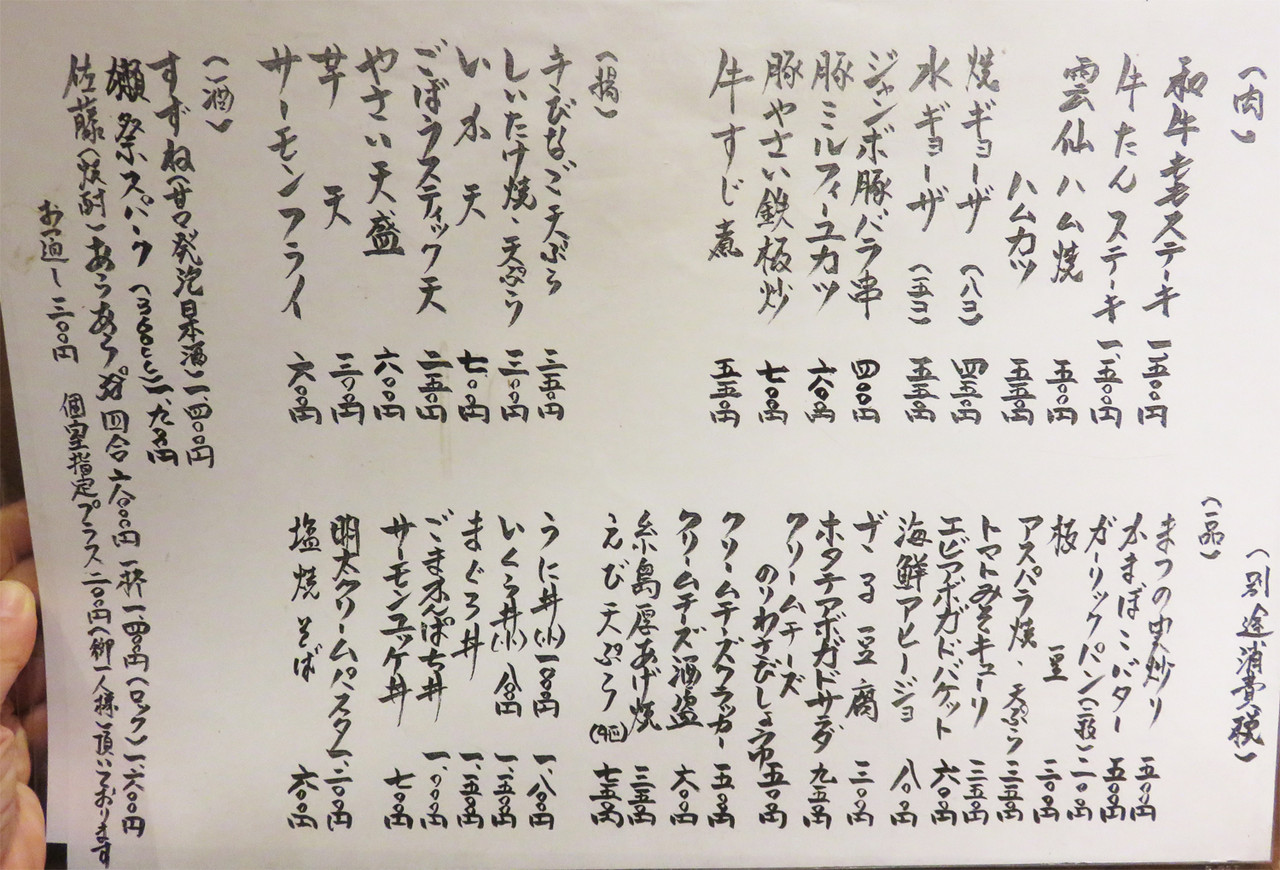 (肉)
和牛壱番ステーキ 一、五〇〇円
牛たんステーキ 一、五〇〇円
雲仙ハム焼 五〇〇円
ハムカツ 五五〇円
焼ギョーザ (八ヨ) 四五〇円
水ギョーザ (五ヨ) 五五〇円
ジャンボ豚バラ串 四〇〇円
豚ミルフィーユカツ 六八〇円
豚やさい鉄板炒 七〇〇円
牛すじ煮 五五〇円
(揚)
きびなご天ぷら 三五〇円
しいたけ焼・天ぷら 三〇〇円
いか天 七〇〇円
ごぼうスティック天 二五〇円
やさい天盛 六〇〇円
芋天 三〇〇円
サーモンフライ 六〇〇円
(酒)
すずね(甘口発泡日本酒) 一、四〇〇円
獺祭スパーク (360cc) 二、九〇〇円
佐藤(焼酎)あらあら 四合 六、八〇〇円 一杯 一、四〇〇円(ロック) 一、六〇〇円
お通し 三〇〇円 個室指定プラス二〇〇円(御一人様)頂いております
(別途消費税)
(一品)
まつの史炒り 五〇〇円
かまぼこバター 五〇〇円
ガーリックパン(二枚) 二〇〇円
枝豆 三〇〇円
アスパラ焼・天ぷら 三五〇円
トマトみそキューリ 三五〇円
エビアボガドバケット 六〇〇円
海鮮アヒージョ 八〇〇円
ざる豆腐 三〇〇円
ホタテアボガドサラダ 九五〇円
クリームチーズ
のりわさびしょう油 五〇〇円
クリームチーズクラッカー 五〇〇円
クリームチーズ酒盗 六〇〇円
糸島厚あげ焼 三五〇円
えび天ぷら (4匹) 七五〇円
うに丼(小)一、一〇〇円 一、八〇〇円
いくら丼(小)八〇〇円 一、五〇〇円
まぐろ丼 一、五〇〇円
ごまかんぱち丼 一、〇〇〇円
サーモンユッケ丼 七〇〇円
明太クリームパスタ 一、二〇〇円
塩焼そば 六〇〇円